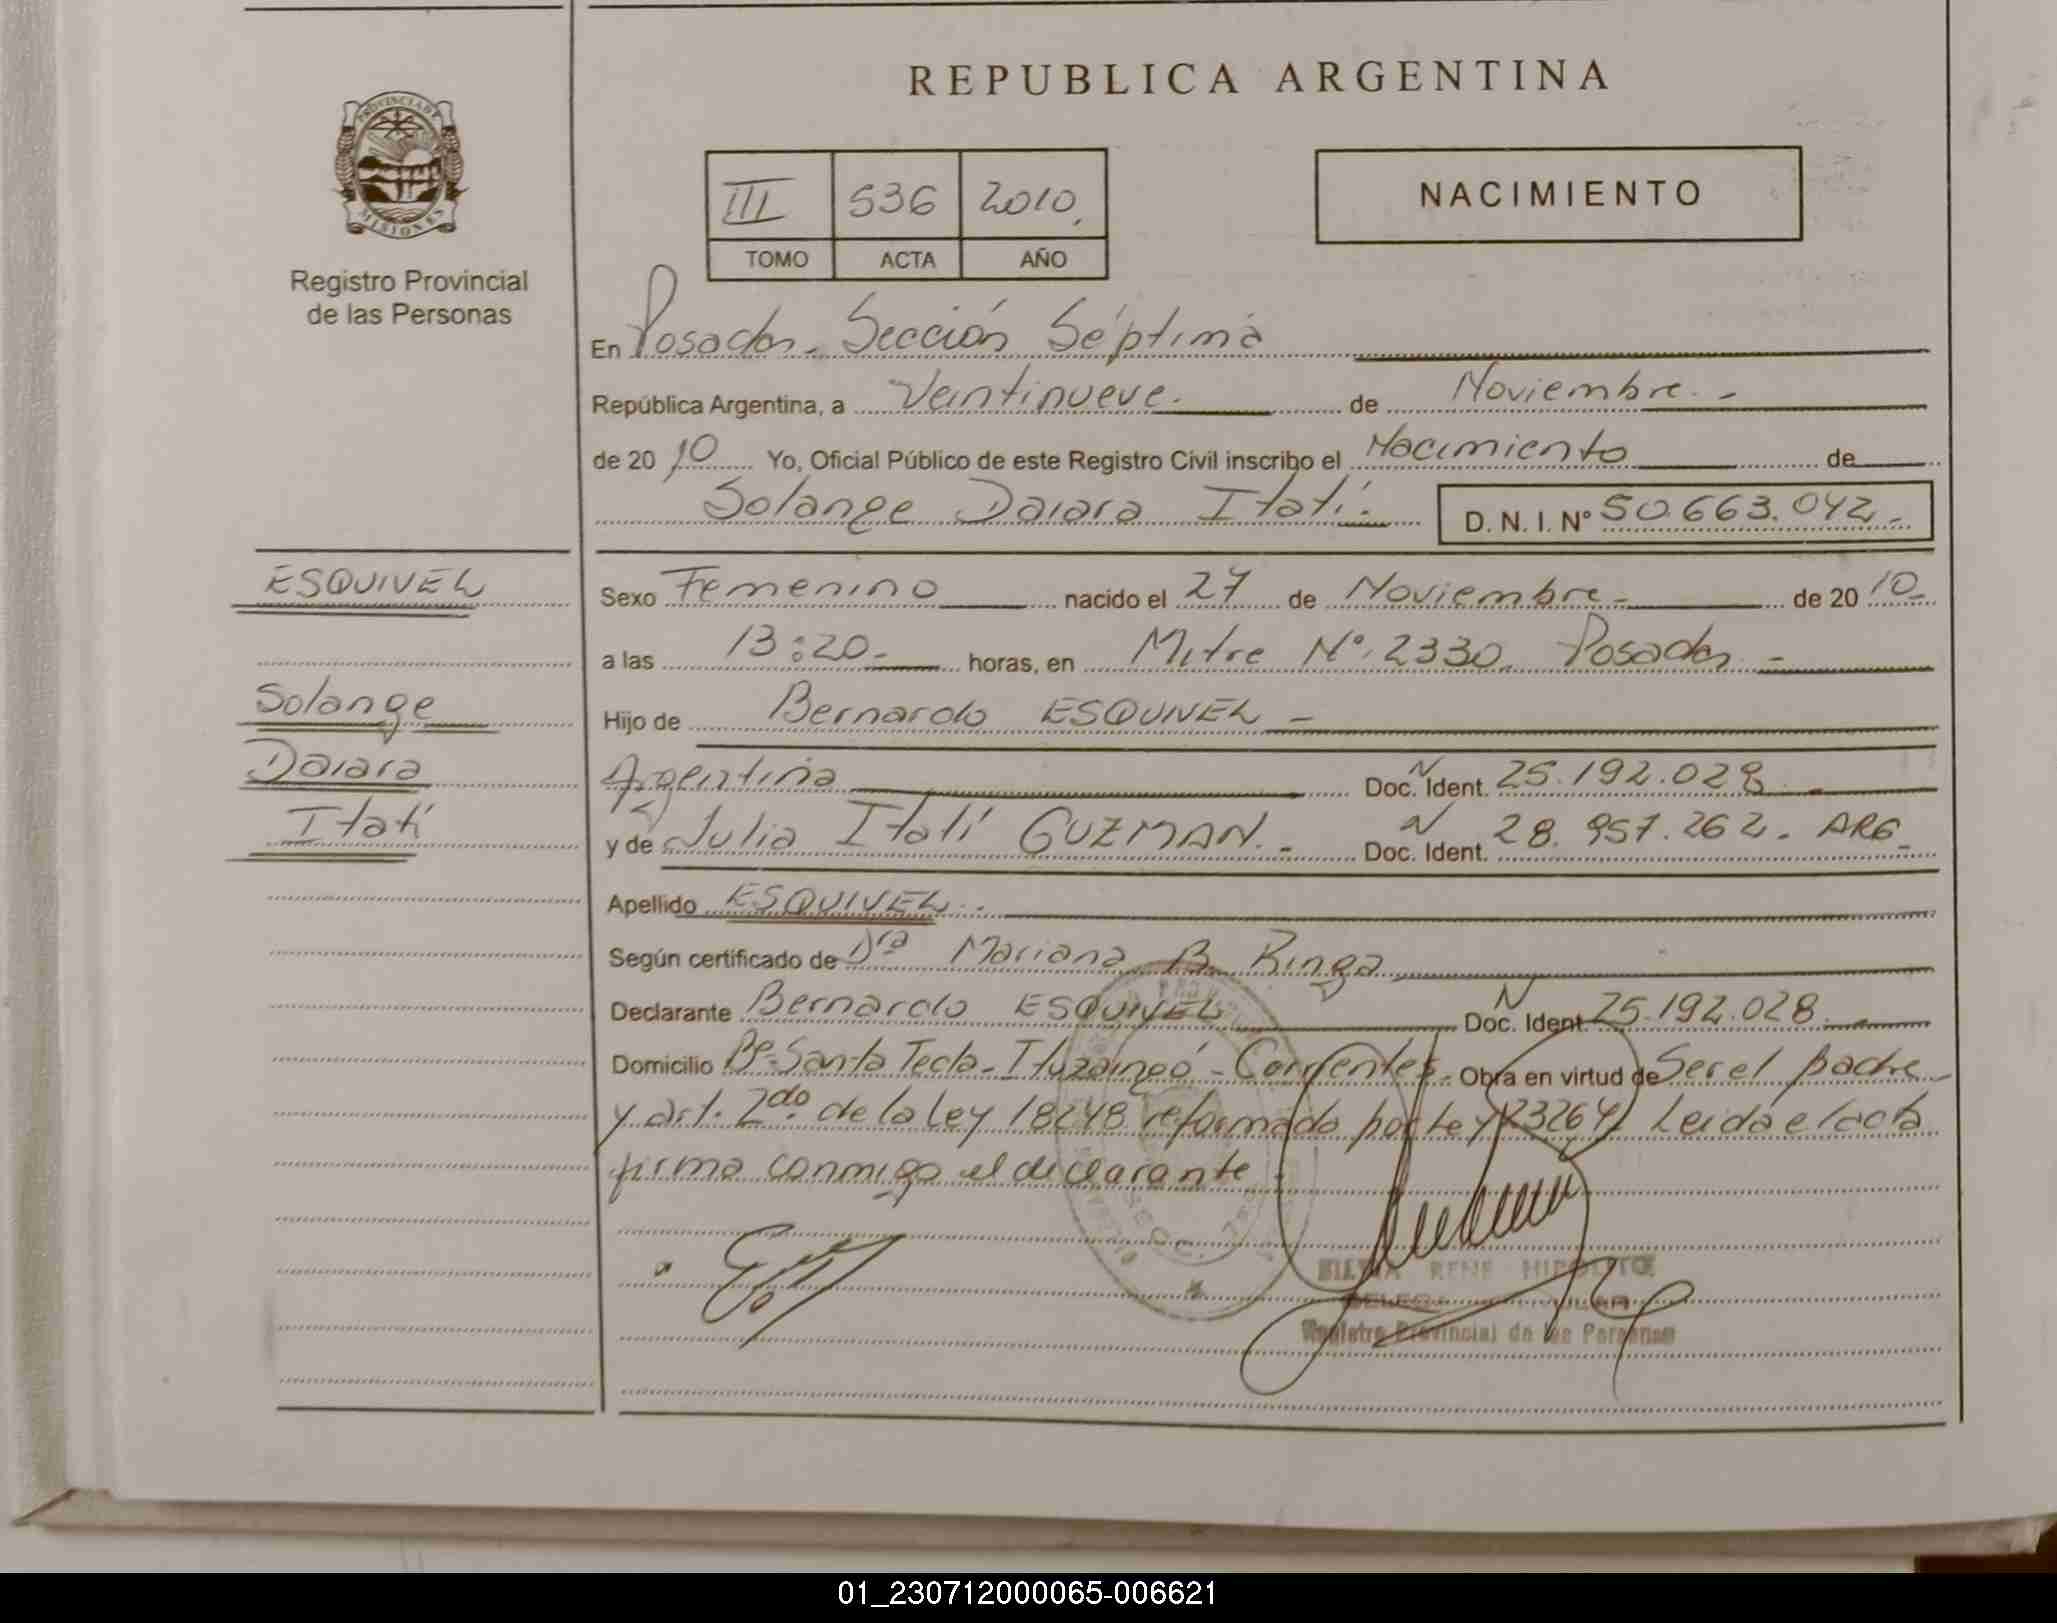 REPUBLICA ARGENTINA
PROVINCIA DE
MISIONES
Registro Provincial
de las Personas
III 536 2010.
TOMO ACTA AÑO
NACIMIENTO
En Posadas - Sección Séptima
República Argentina, a Veintinueve. de Noviembre. -
de 20 10 Yo, Oficial Público de este Registro Civil inscribo el Nacimiento de
Solange Daiara Itatí. - D. N. I. N° 50.663.042 -
ESQUIVEL
Solange
Daiara
Itatí
Sexo Femenino nacido el 27 de Noviembre - de 20 10 -
a las 13:20 - horas, en Mitre N° 2330. Posadas -
Hijo de Bernardo ESQUIVEL -
Argentina Doc. Ident. N 25.192.028 -
y de Julia Itatí GUZMAN. - Doc. Ident. N 28.957.262 - ARG -
Apellido ESQUIVEL. -
Según certificado de Dra Mariana B. Ringa
Declarante Bernardo ESQUIVEL Doc. Ident N 25.192.028. -
Domicilio B° Santa Tecla - Ituzaingó - Corrientes - Obra en virtud de Ser el padre -
y art. 2do de la ley 18248 reformado por ley 23264. Leida el acta
firma conmigo el declarante -
SECC. 7
RENE HIPOLITO
Registro Provincial de las Personas
01_230712000065-006621